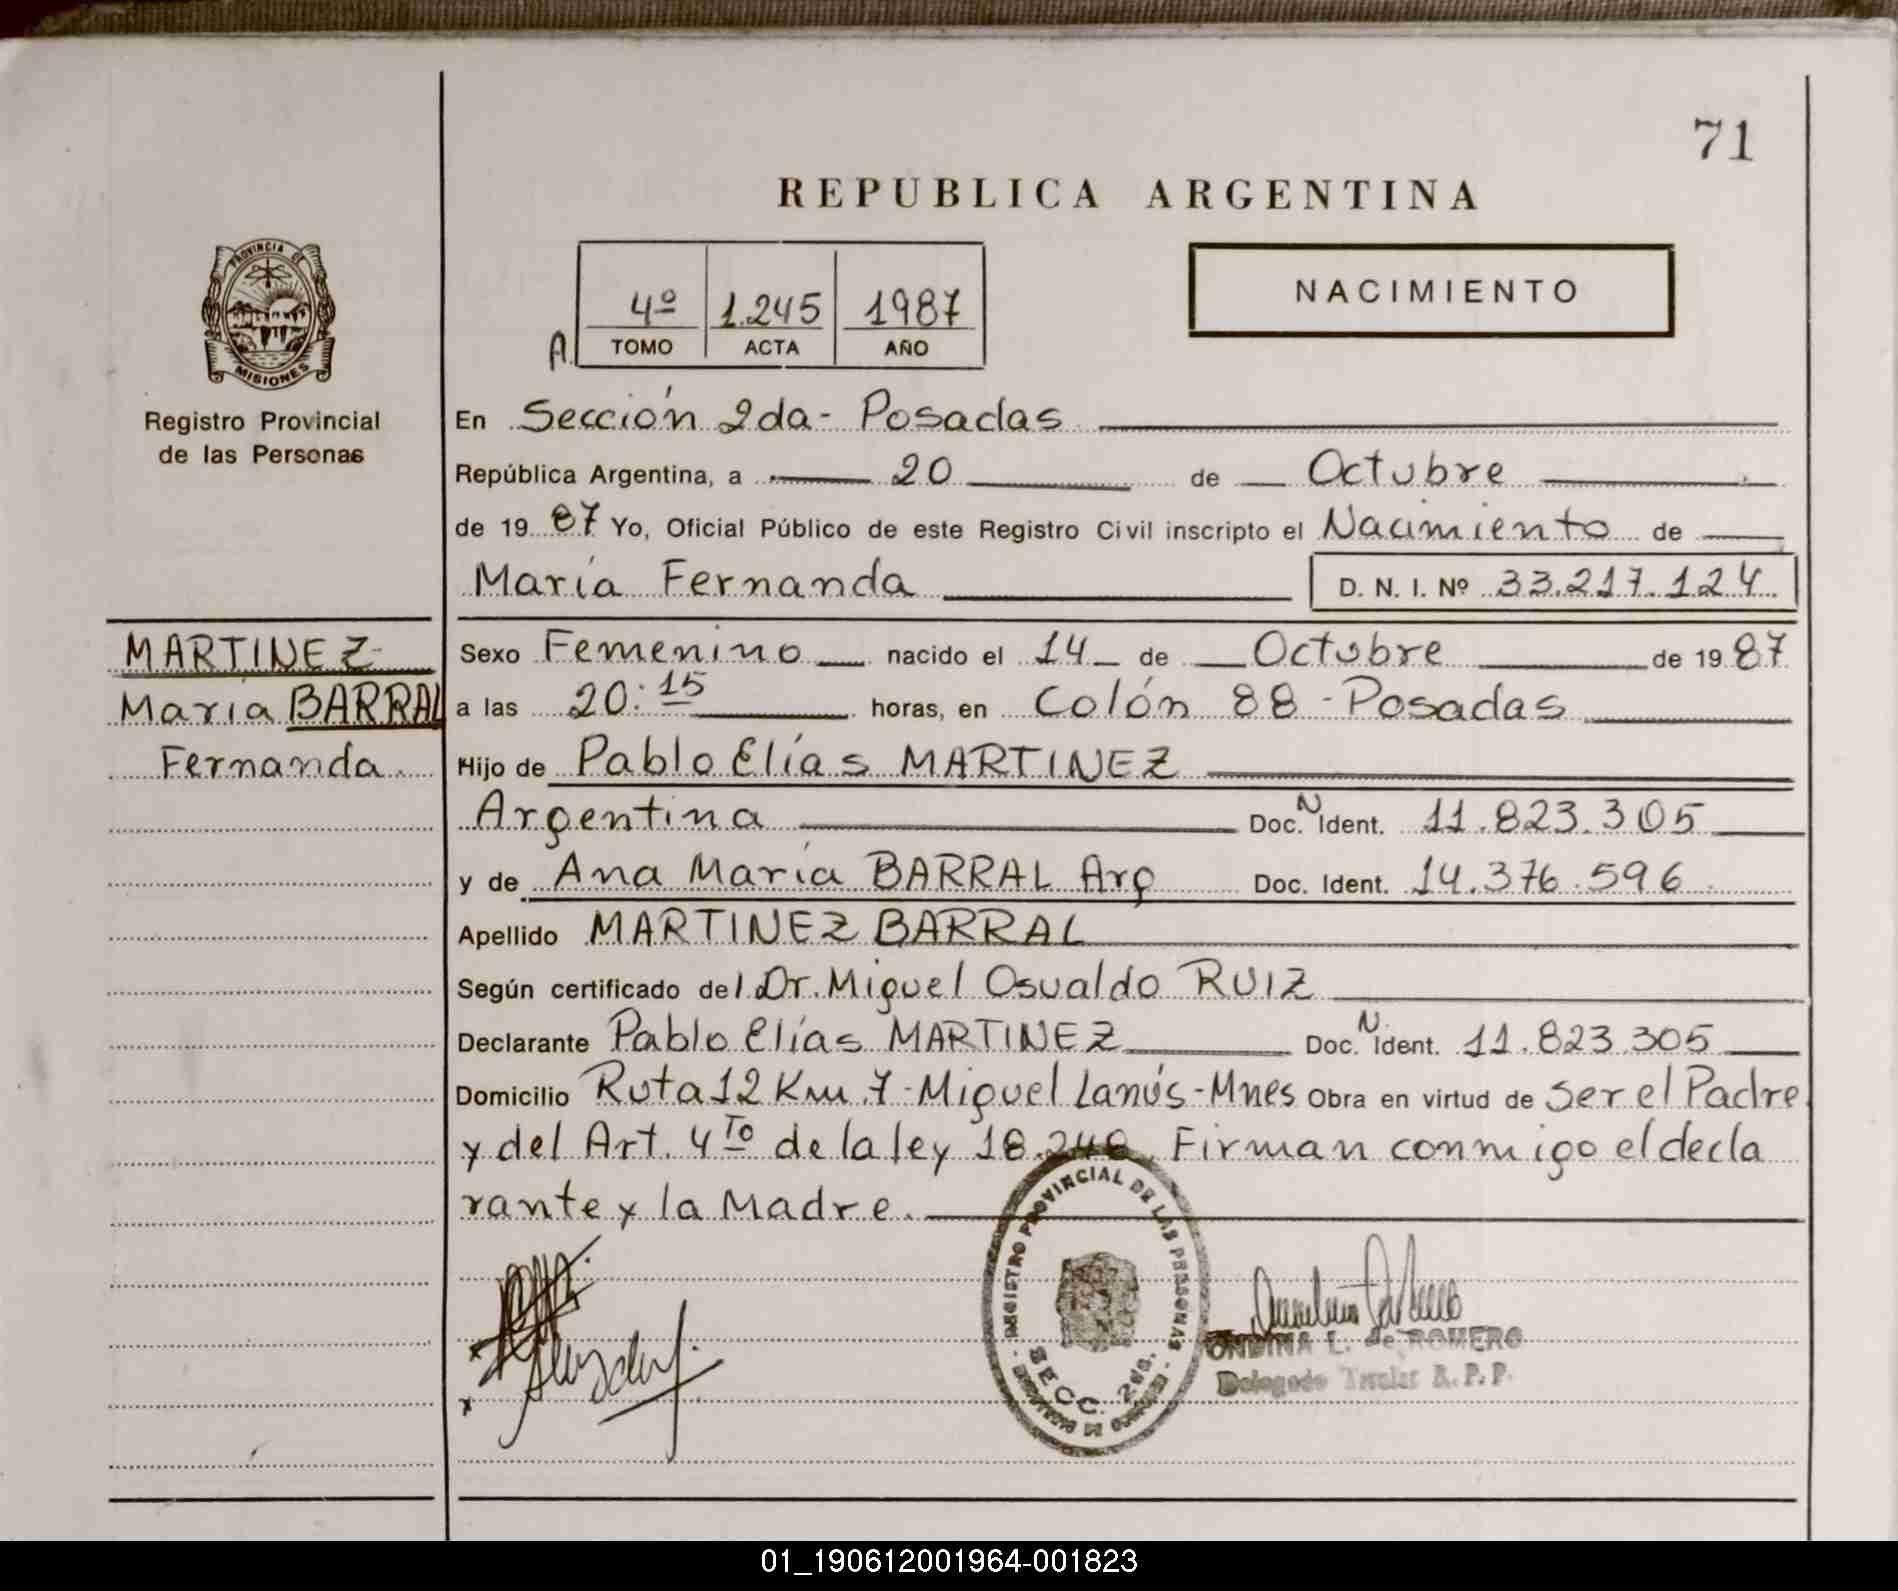 71
REPUBLICA ARGENTINA
PROVINCIA DE
MISIONES
Registro Provincial
de las Personas
4º 1.245 1987
A. TOMO ACTA AÑO
NACIMIENTO
En Sección 2da - Posadas
República Argentina, a 20 de Octubre
de 19 87 Yo, Oficial Público de este Registro Civil inscripto el Nacimiento de
María Fernanda D. N. I. Nº 33.217.124
MARTINEZ
María BARRAL
Fernanda
Sexo Femenino nacido el 14 de Octubre de 19 87
a las 20:15 horas, en Colón 88 - Posadas
Hijo de Pablo Elías MARTINEZ
Argentina Doc. N Ident. 11.823.305
y de Ana María BARRAL Arg Doc. Ident. 14.376.596
Apellido MARTINEZ BARRAL
Según certificado del Dr. Miguel Osvaldo RUIZ
Declarante Pablo Elías MARTINEZ Doc. N. Ident. 11.823.305
Domicilio Ruta 12 Km 7 - Miguel Lanús - Mnes Obra en virtud de Ser el Padre
y del Art. 4to de la ley 18.248. Firman conmigo el decla
rante y la Madre.
REGISTRO PROVINCIAL DE LAS PERSONAS
SECC. 2da.
ONDINA L. de ROMERO
Delegado Titular R.P.P.
01_190612001964-001823